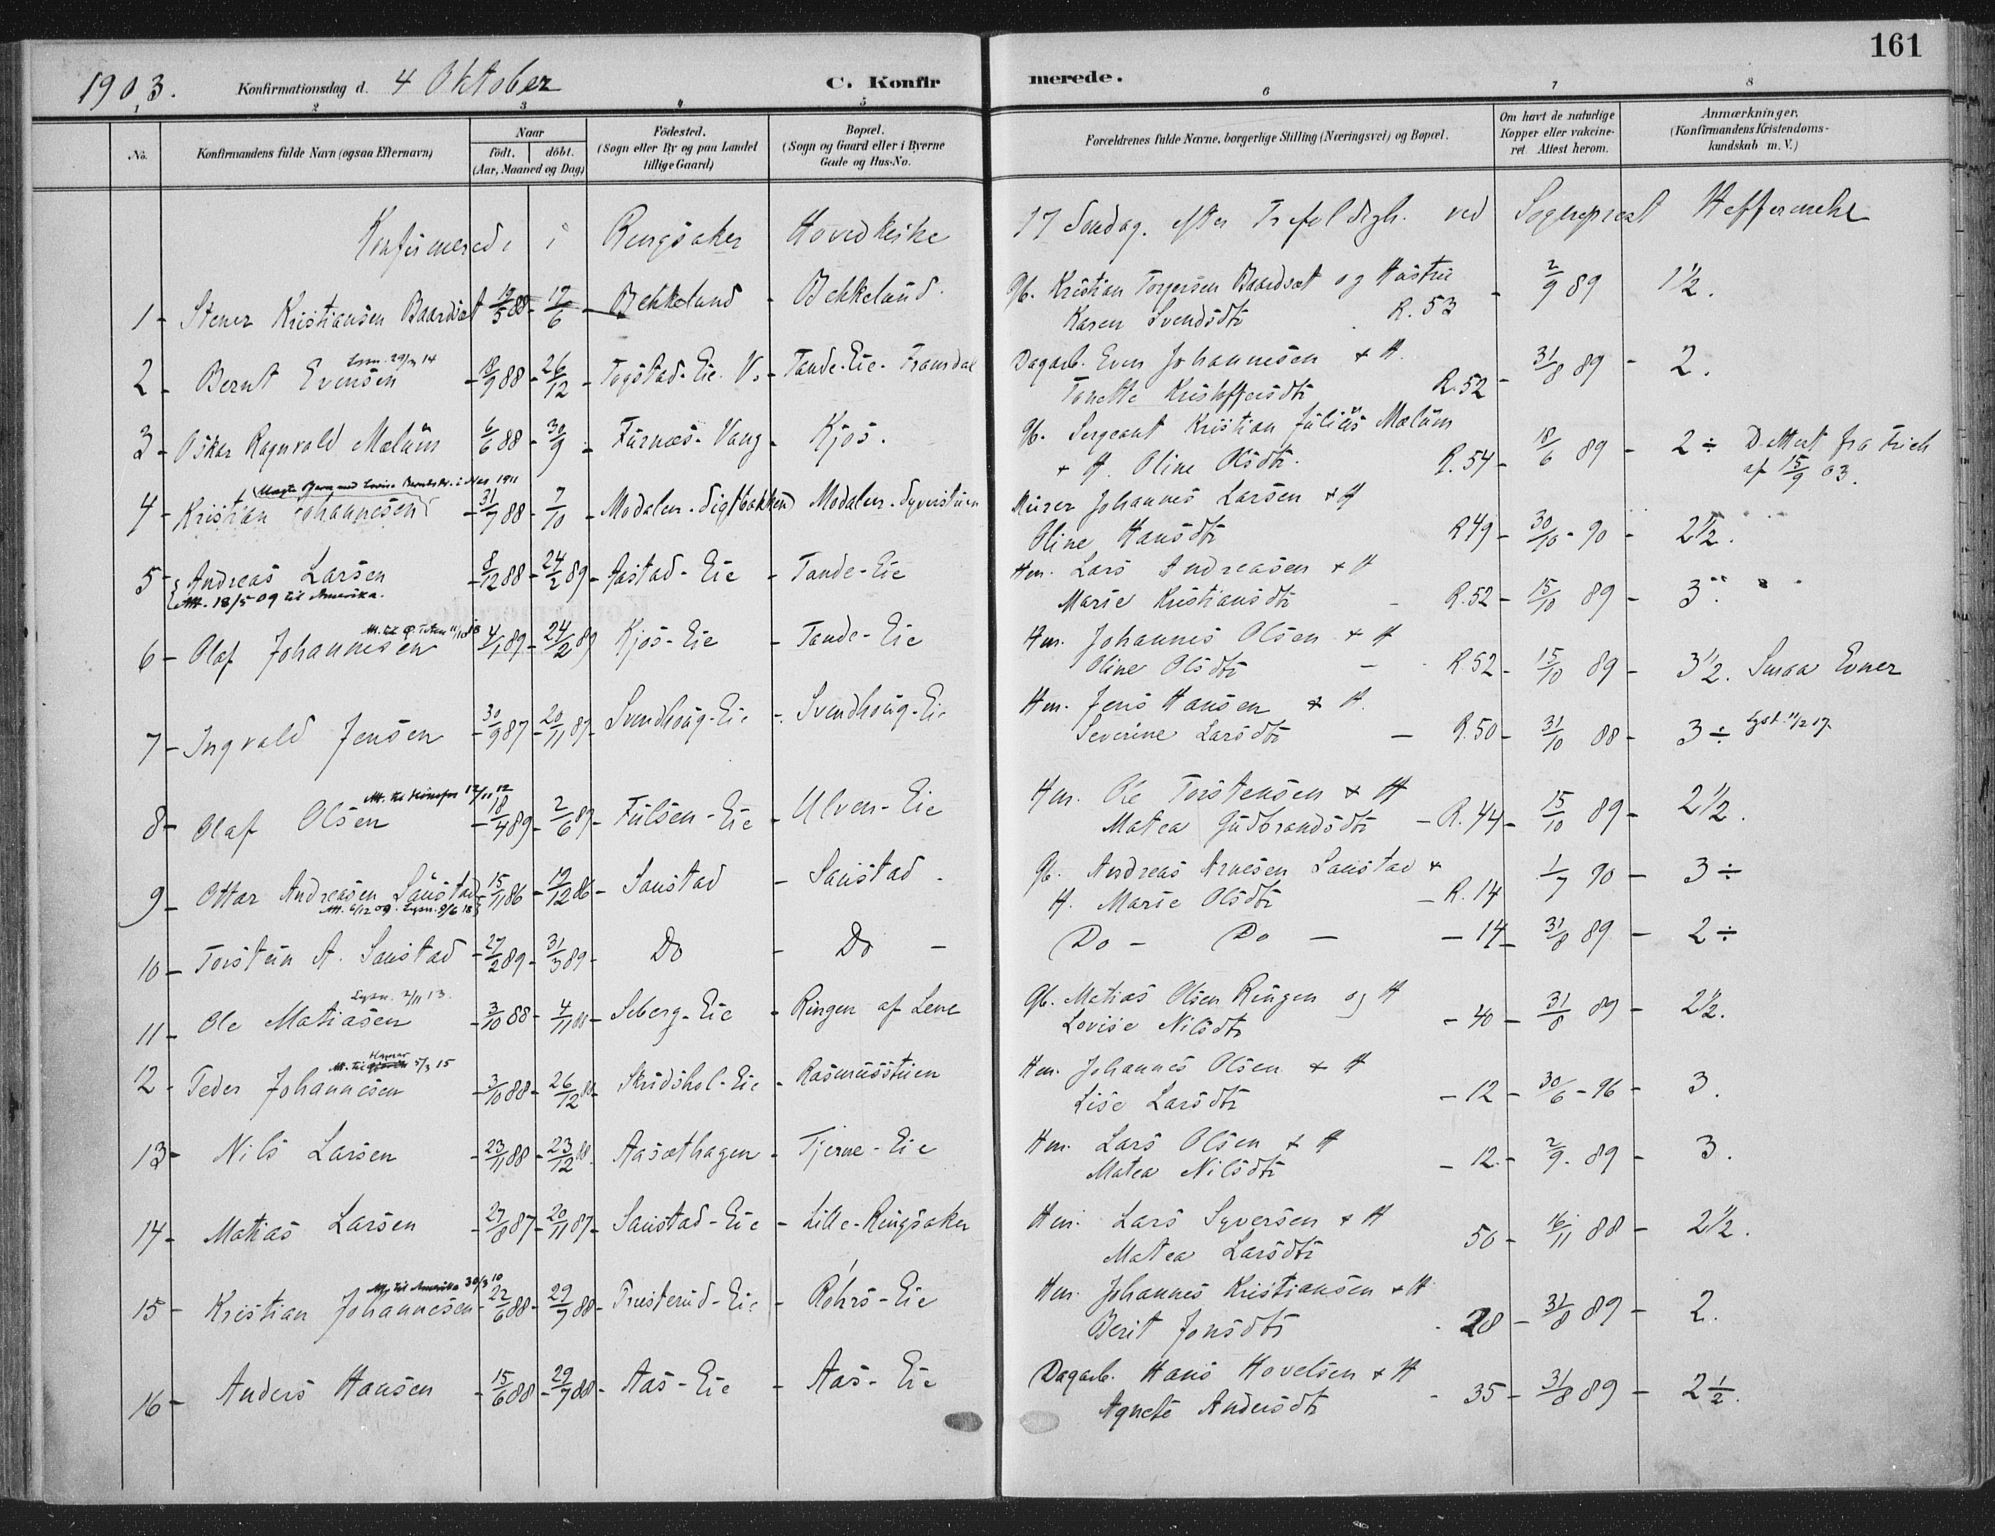 161
1903. Konfirmationsdag d. 4 Oktober C. Konfirmerede.
1 2 3 4 5 6 7 8
No. Konfirmandens fulde Navn (ogsaa Efternavn) Naar født. døbt. (Aar, Maaned og Dag) Fødested. (Sogn eller By og paa Landet tillige Gaard) Bopæl. (Sogn og Gaard eller i Byerne Gade og Hus-No. Forældrenes fulde Navne, borgerlige Stilling (Næringsvei) og Bopæl. Om havt de naturlige Kopper eller vakcineret Attest herom. Anmærkninger. (Konfirmandens Kristendomskundskab m. V.)
Konfirmerede i Ringsaker Hovedkirke 17 Søndag efter Trefoldigh. ved Sogneprest Heffermehl
1 - Stener Kristiansen Baardset 19/5 88 - 17/6 - Bekkelund - Bekkelund. Gb. Kristian Torgersen Baardset og Hustru - 2/9 89 1 1/2.
Karen Svendsdtr R. 53
Lysn. 29/3 14
2 - Bernt Evensen - 18/9 88 - 26/12 - Togstad-Eie. V. - Tande-Eie - Framdal Dagarb. Even Johannesen & H. - 31/8 89 - 2.
Tonette Kristoffersdtr R. 52
3 - Oskar Ragnvald Mælum 6/6 88 - 30/9 - Furnæs - Vang - Kjos. Gb. Sergeant Kristian Julius Mælum 18/6 89 - 2 ÷ D. Attest fra Frich
& H. Oline Olsdtr. R. 54 - af 15/9 03.
4 - Kristian Johannesen - 31/7 88 - 7/10 - Modalen - Sigtbakken Modalen - Syverstuen Murer Johannes Larsen & H
Oline Hansdtr R 49 - 30/10 - 90 - 2 1/2.
5 - Andreas Larsen - 8/12 88 - 24/2 89 - Gaistad - Eie - Tande - Eie Hm. Lars Andreasen & H
Att. 18/5 09 til Amerika. Marie Kristiansdtr - R. 52 - 15/10 89 - 3.
6 - Olaf Johannesen 4/1 89 - 24/2 89 Kjos - Eie - Tande - Eie Hm. Johannes Olsen & H
Oline Olsdtr - R 52 - 15/10 89 - 3 1/2. Smaa Evner
7 - Ingvald Jensen - 30/9 87 - 20/11 87 - Svendhoug - Eie - Svendhoug - Eie Hm. Jens Hansen & H.
Severine Larsdtr - R. 50 - 31/10 88 - 3 ÷
8 - Olaf Olsen - 18/4 89 - 2/6 89 - Fulsen - Eie - Ulven - Eie Hm. Ole Torstensen & H
Matea Gudbrandsdtr - R. 44 - 15/10 89 - 2 1/2.
9 - Ottar Andreasen Saustad 15/11 86 - 19/12 86 - Saustad - Saustad - Gb. Andreas Arnesen Saustad & 1/7 90 - 3 ÷
Att. 6/12 09. Lysn. 9/6 18 H. Marie Olsdtr - R. 14
10 - Torstein A. Saustad - 27/2 89 - 31/3 89 - Do - Do - Do - Do - - 14 - 31/8 89 - 2 ÷
Lysn. 2/11 13.
11 - Ole Matiasen - 3/10 88 - 4/11 88 - Seberg - Eie - Ringen af Lene Gb. Matias Olsen Ringen og H
Lovise Nilsdtr - 40 - 31/8 89 - 2 1/2.
Hamar 5/3 15
12 - Peder Johannesen - 3/10 88 - 26/12 88 - Skridshol - Eie - Rasmusstuen Hm. Johannes Olsen & H
Lise Larsdtr - 12 - 30/6 - 96 - 3.
13 - Nils Larsen - 23/11 88 - 23/12 88. Aasæthagen - Tjerne - Eie Hm. Lars Olsen & H
Matea Nilsdtr - 12. - 2/9. 89 - 3.
14 - Matias Larsen - 27/8 87 - 20/11 87 - Saustad - Eie - Lille - Ringsaker Hm. Lars Syversen & H
Matea Larsdtr 50 - 16/11 88 - 2 1/2.
Att. til Amerika 30/3 10
15 - Kristian Johannesen - 22/6 88 - 29/7 88 - Trusterud - Eie - Røhrs - Eie Hm. Johannes Kristiansen & H.
Berit Jonsdtr - 28 - 31/8 89 - 2.
16 - Anders Hansen - 15/6 88 - 29/7 88 - Aas - Eie - Aas - Eie Dagarb. Hans Hovelsen & H
Agnete Andersdtr - 35 - 31/8 89 - 2 1/2.